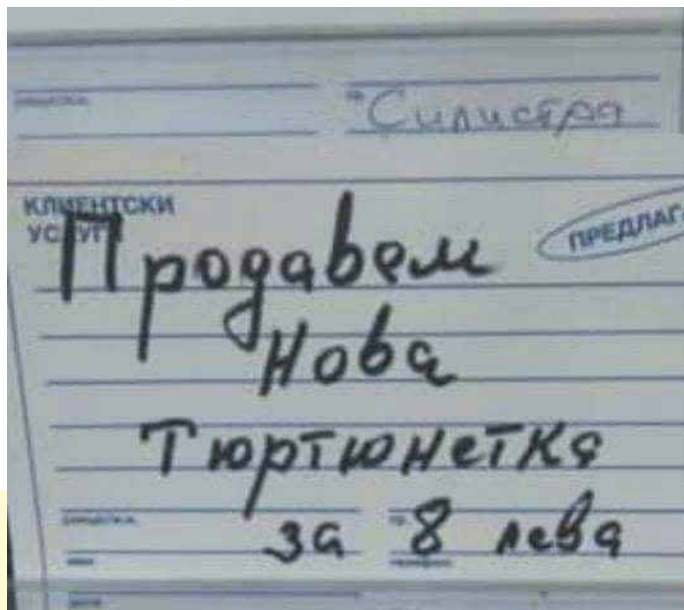 гр. Силистра
КЛИЕНТСКИ
УСЛУГИ
ПРЕДЛАГА
Продавем
Нова
Тюртюнетка
за 8 лева